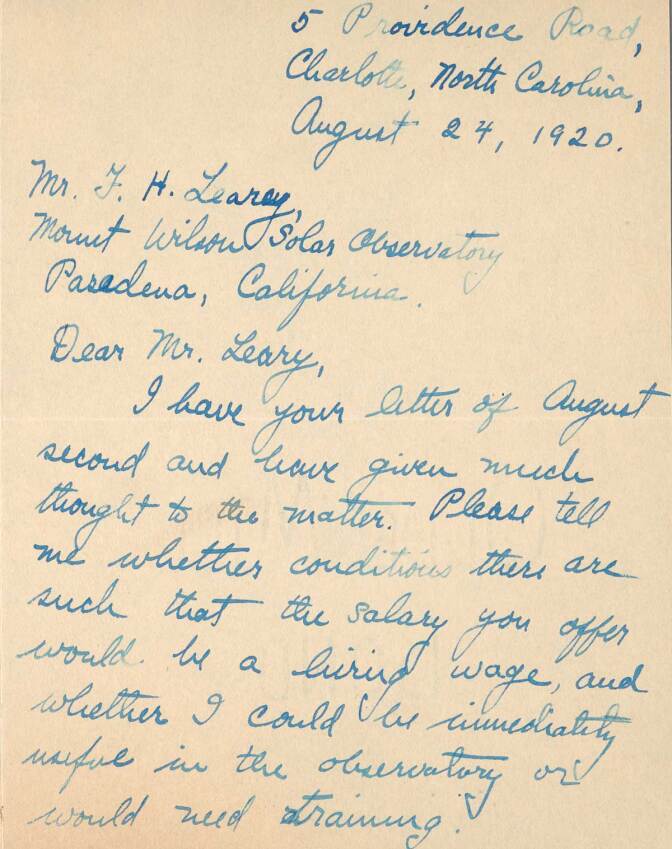 5 Providence Road,
Charlotte, North Carolina,
August 24, 1920.
Mr. F. H. Learey,
Mount Wilson Solar Observatory
Pasadena, California.
Dear Mr. Leary,
I have your letter of August
second and have given much
thought to the matter. Please tell
me whether conditions there are
such that the salary you offer
would be a living wage, and
whether I could be immediately
useful in the observatory or
would need training.